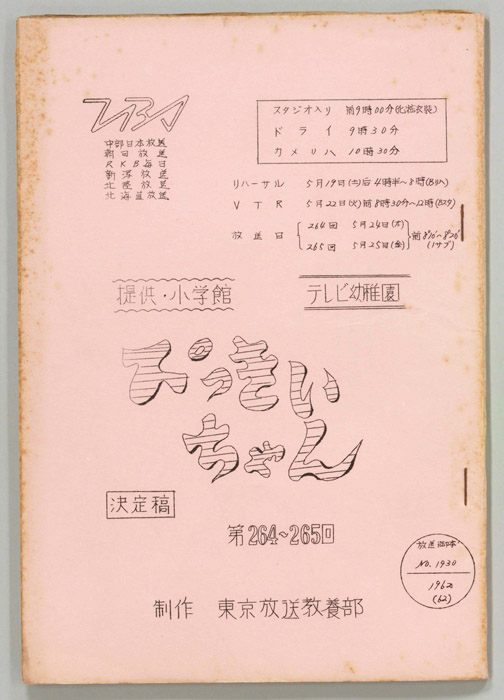 TBS
中部日本放送
朝日放送
RKB毎日
新潟放送
北陸放送
北海道放送
スタジオ入り 前9時00分(化粧衣裳)
ドライ 9時30分
カメリハ 10時30分
リハーサル 5月19日(土)后4時半〜8時(Bリハ)
VTR 5月22日(火)前8時30分〜12時(Bスタ)
放送日 264回 5月24日(木)
265回 5月25日(金)
前8°10'〜8°20'
(1サブ)
提供・小学館
テレビ幼稚園
ぴっきいちゃん
決定稿
第264〜265回
放送脚本
NO. 1930
1962
(62)
制作 東京放送教養部